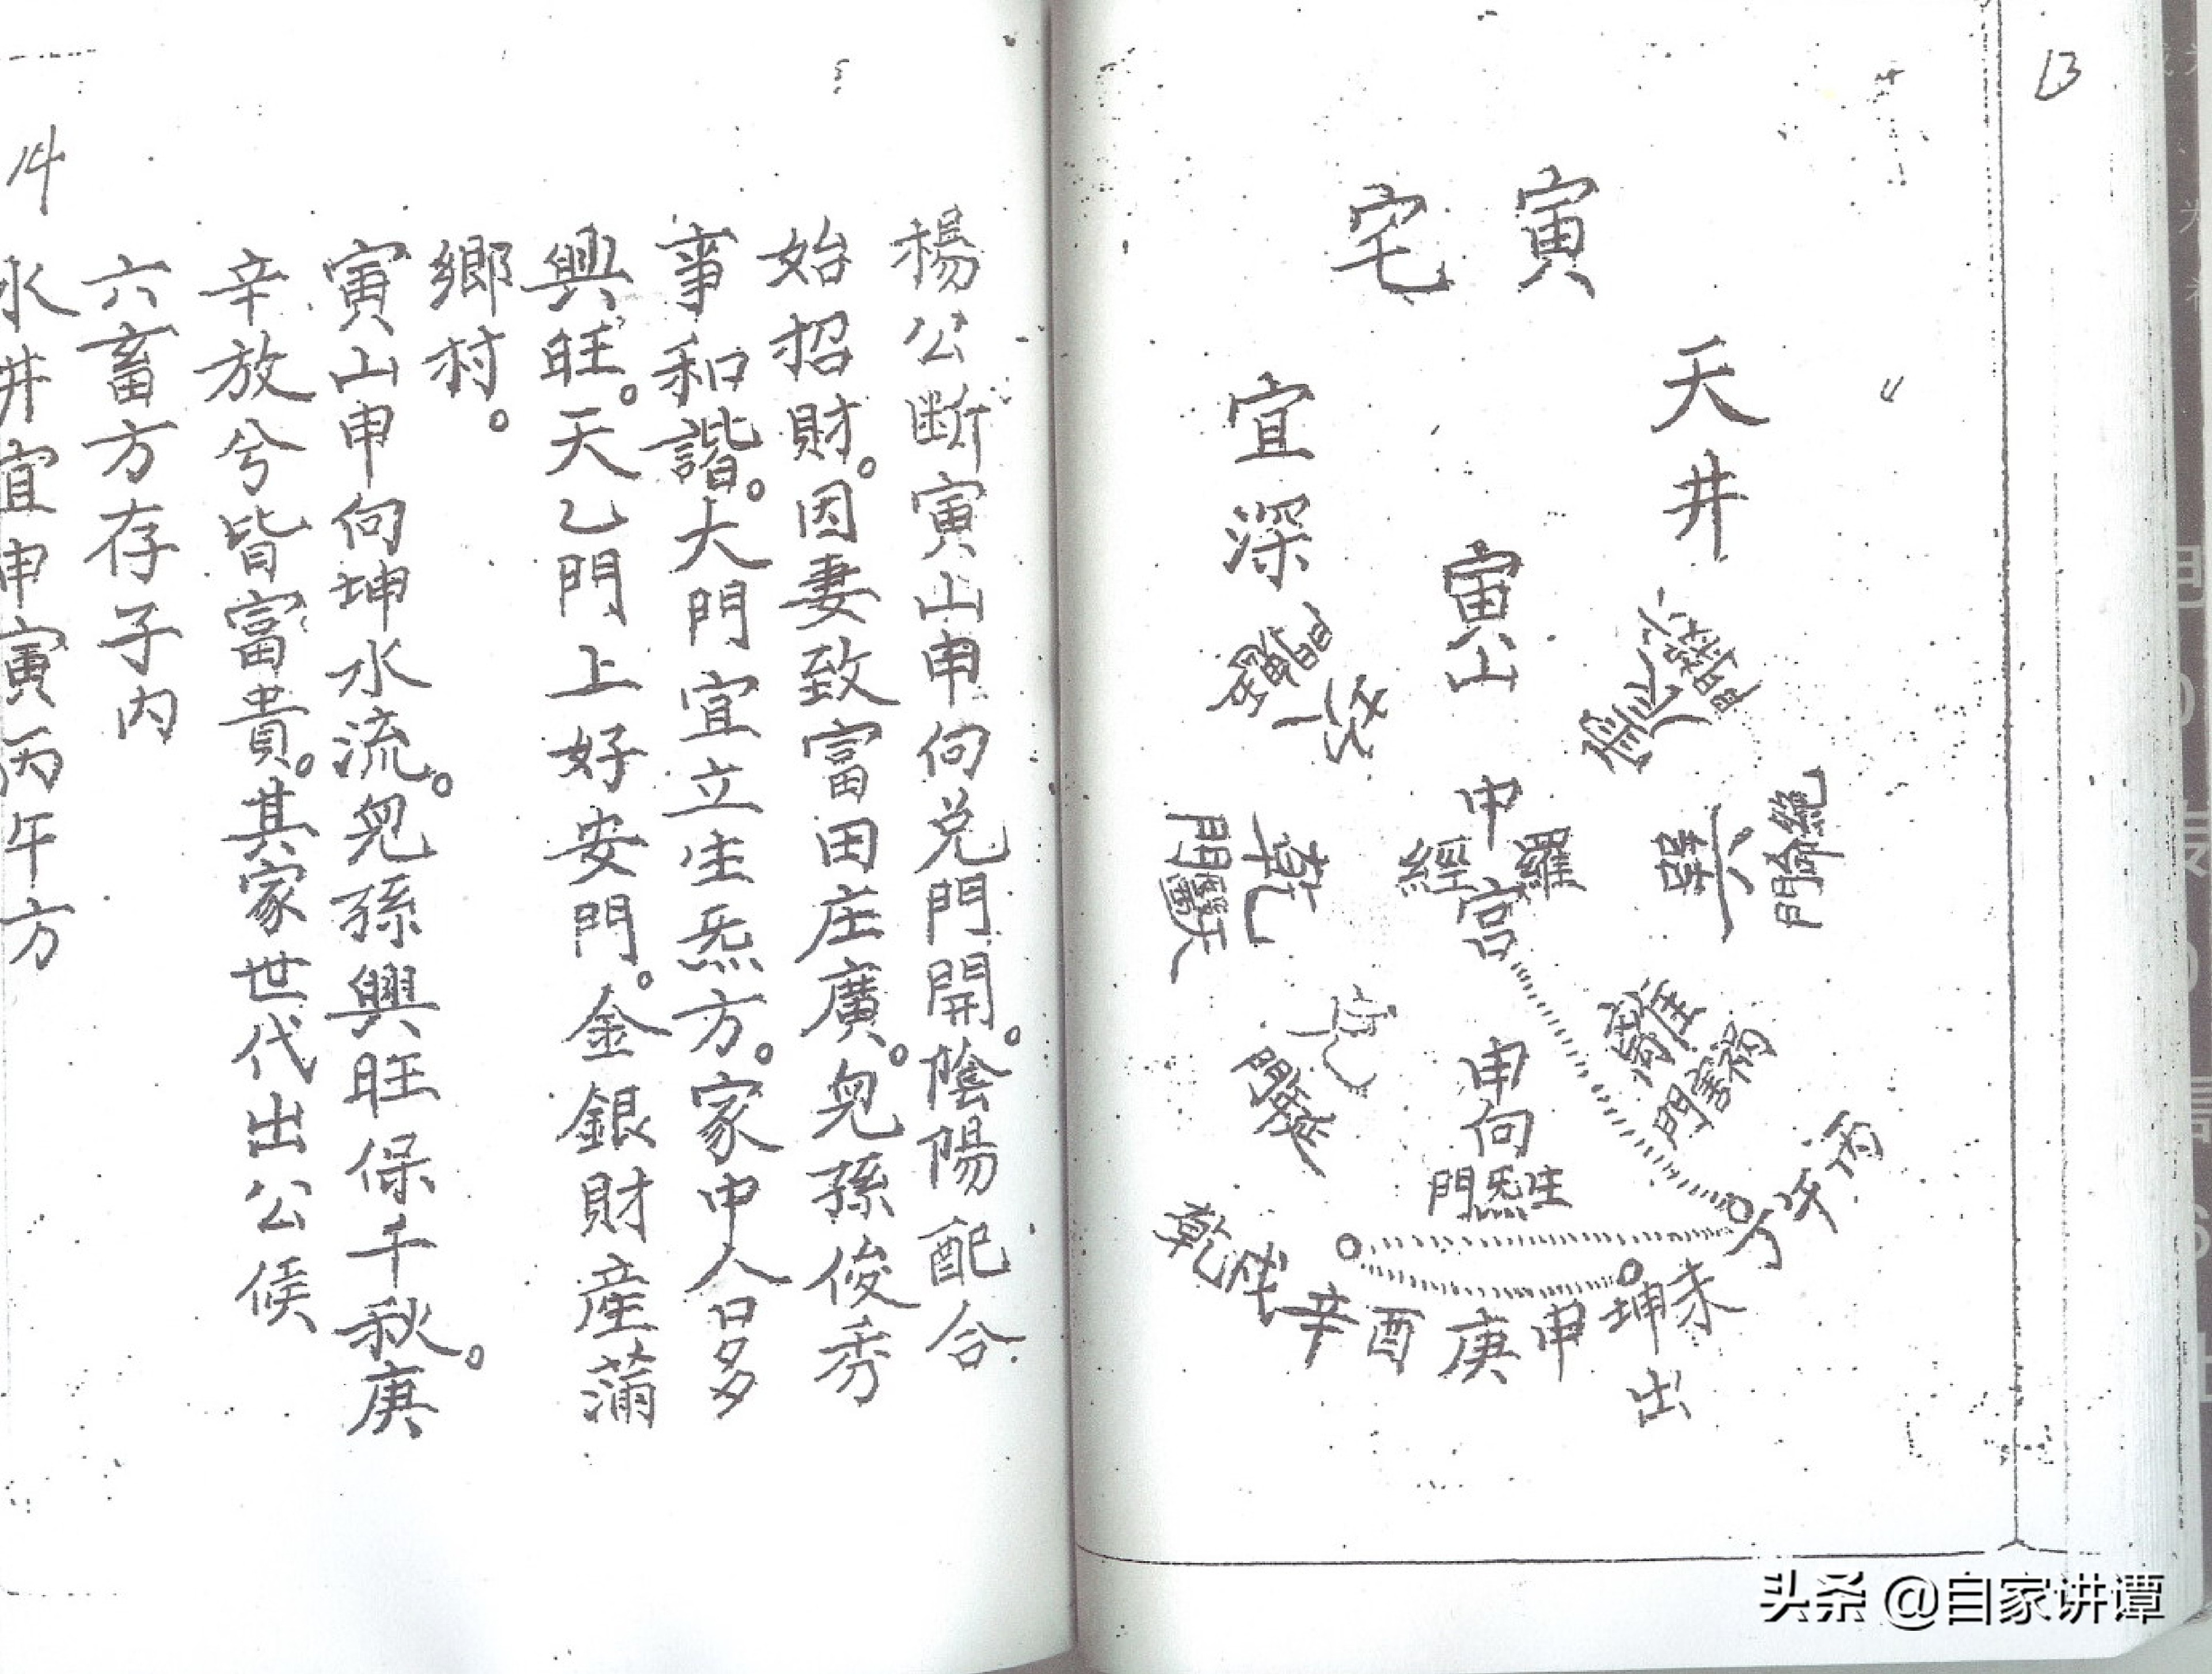 13
寅宅
天井
宜深
寅山
中宮
羅經
巽
絕命門
乾
天醫門
申向
生炁門
丙
午
丁
未
坤
申
庚
酉
辛
戌
乾
出
楊公斷寅山申向兌門開。陰陽配合
始招財。因妻致富田庄廣。兒孫俊秀
事和諧。大門宜立生炁方。家中人口多
興旺。天乙門上好安門。金銀財產蒲
鄉村。
寅山申向坤水流。兒孫興旺保千秋。庚
辛放兮皆富貴。其家世代出公侯
六畜方存子內
水井宜申寅丙午方
14
头条 @自家讲谭